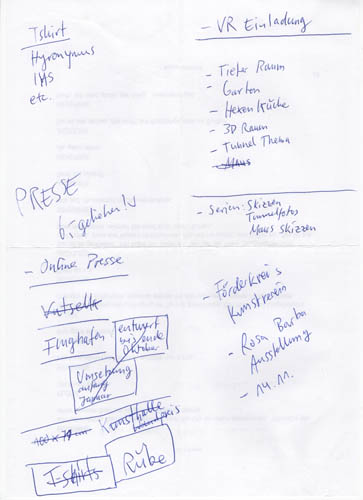 Tshirt
Hyronymus
IHS
etc.
PRESSE
6,- geliehen!
- VR Einladung
- Tiefer Raum
- Garten
- Hexenküche
- 3D Raum
- Tunnel Thema
- Maus
- Serien: Skizzen
Tunnelfotos
Maus Skizzen
- Online Presse
Flughafen
entwurf
bis ende
Oktober
Umsetzung
anfang
Januar
100 x 70 cm
Kunsthalle
T-shirts
Rübe
- Förderkreis
Kunstverein
- Rosa Barba
Ausstellung
- 14.11.